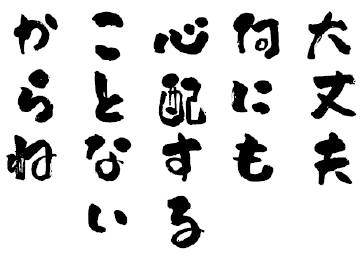 大丈夫
何にも
心配する
ことない
からね